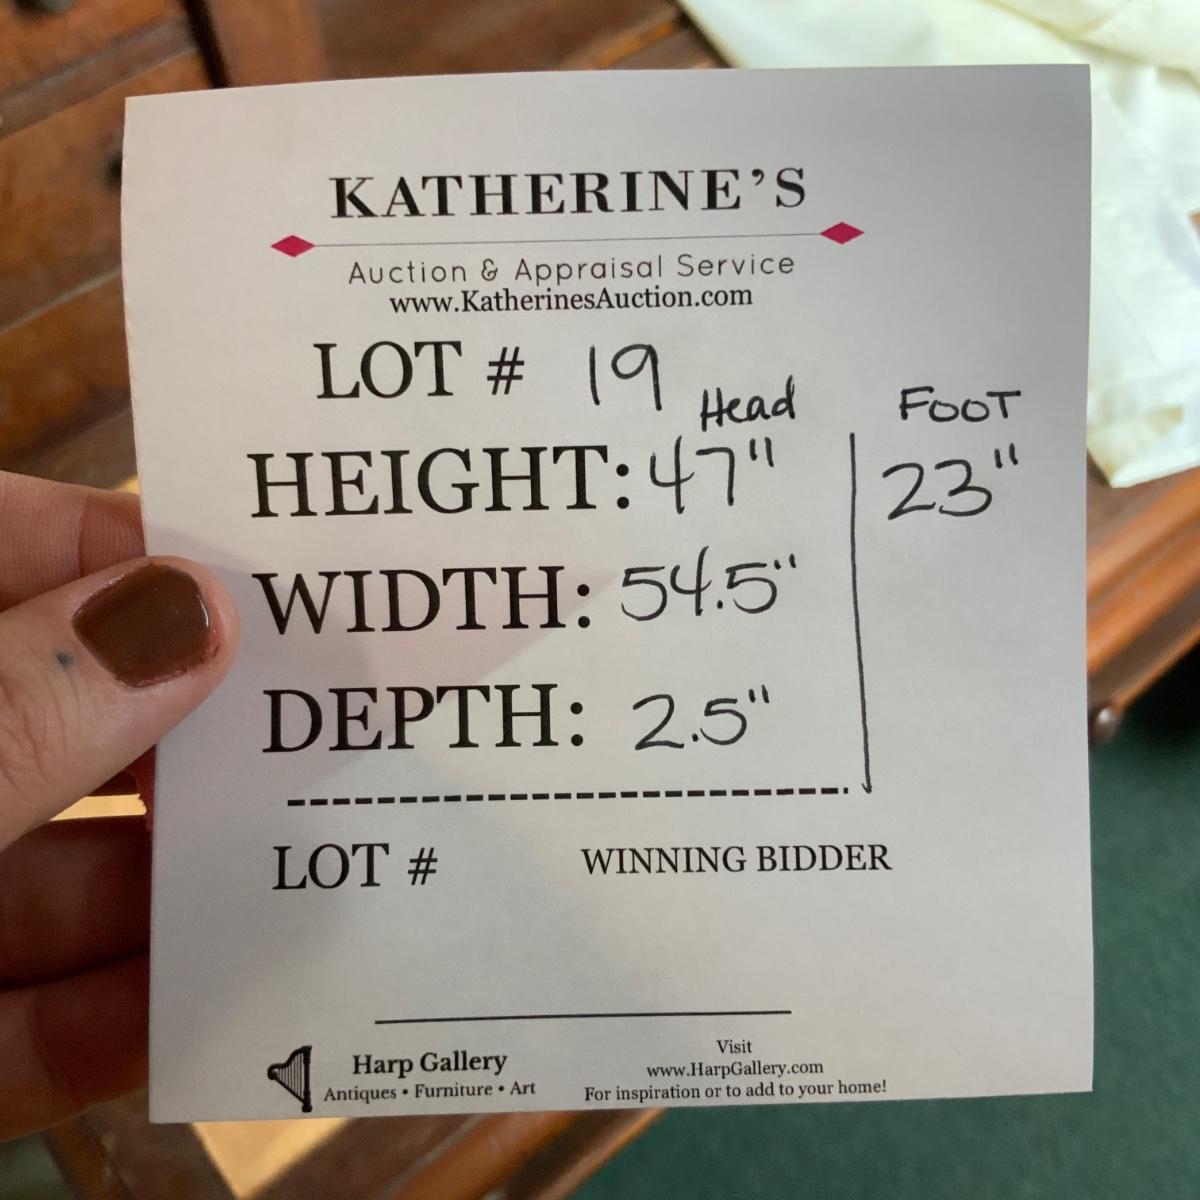 KATHERINE'S
Auction & Appraisal Service
www.KatherinesAuction.com
LOT # 19
Head FOOT
HEIGHT: 47" 23"
WIDTH: 54.5"
DEPTH: 2.5"
LOT # WINNING BIDDER
Harp Gallery
Antiques • Furniture • Art
Visit
www.HarpGallery.com
For inspiration or to add to your home!